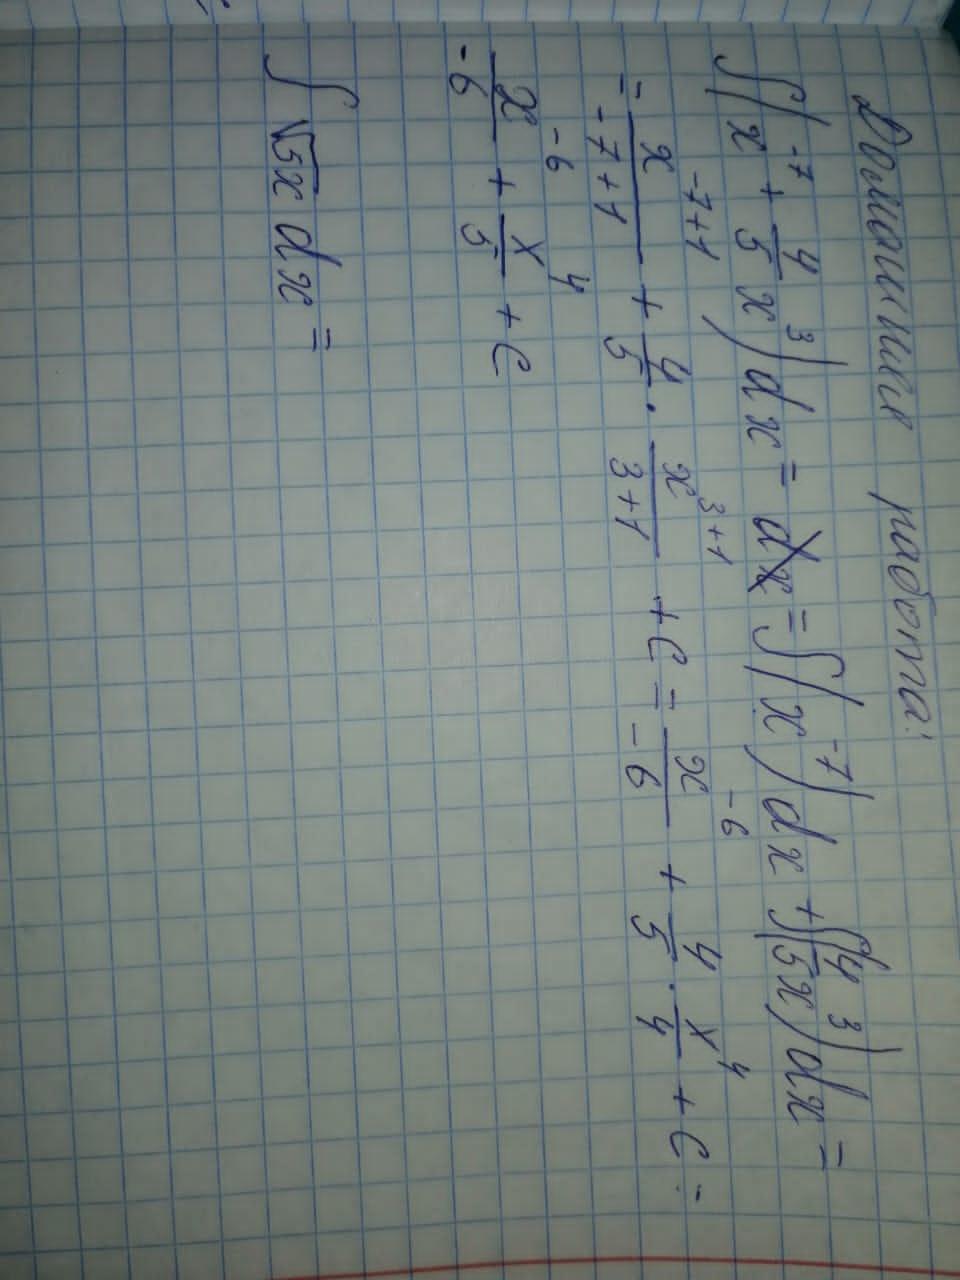 Домашняя работа:
∫(x⁻⁷ + 4/5 x³)dx = dx = ∫(x⁻⁷)dx + ∫(4/5 x³)dx =
= x⁻⁷⁺¹/-7+1 + 4/5 · x³⁺¹/3+1 + C = x⁻⁶/-6 + 4/5 · x⁴/4 + C =
x⁻⁶/-6 + x⁴/5 + C
∫ √5x dx =